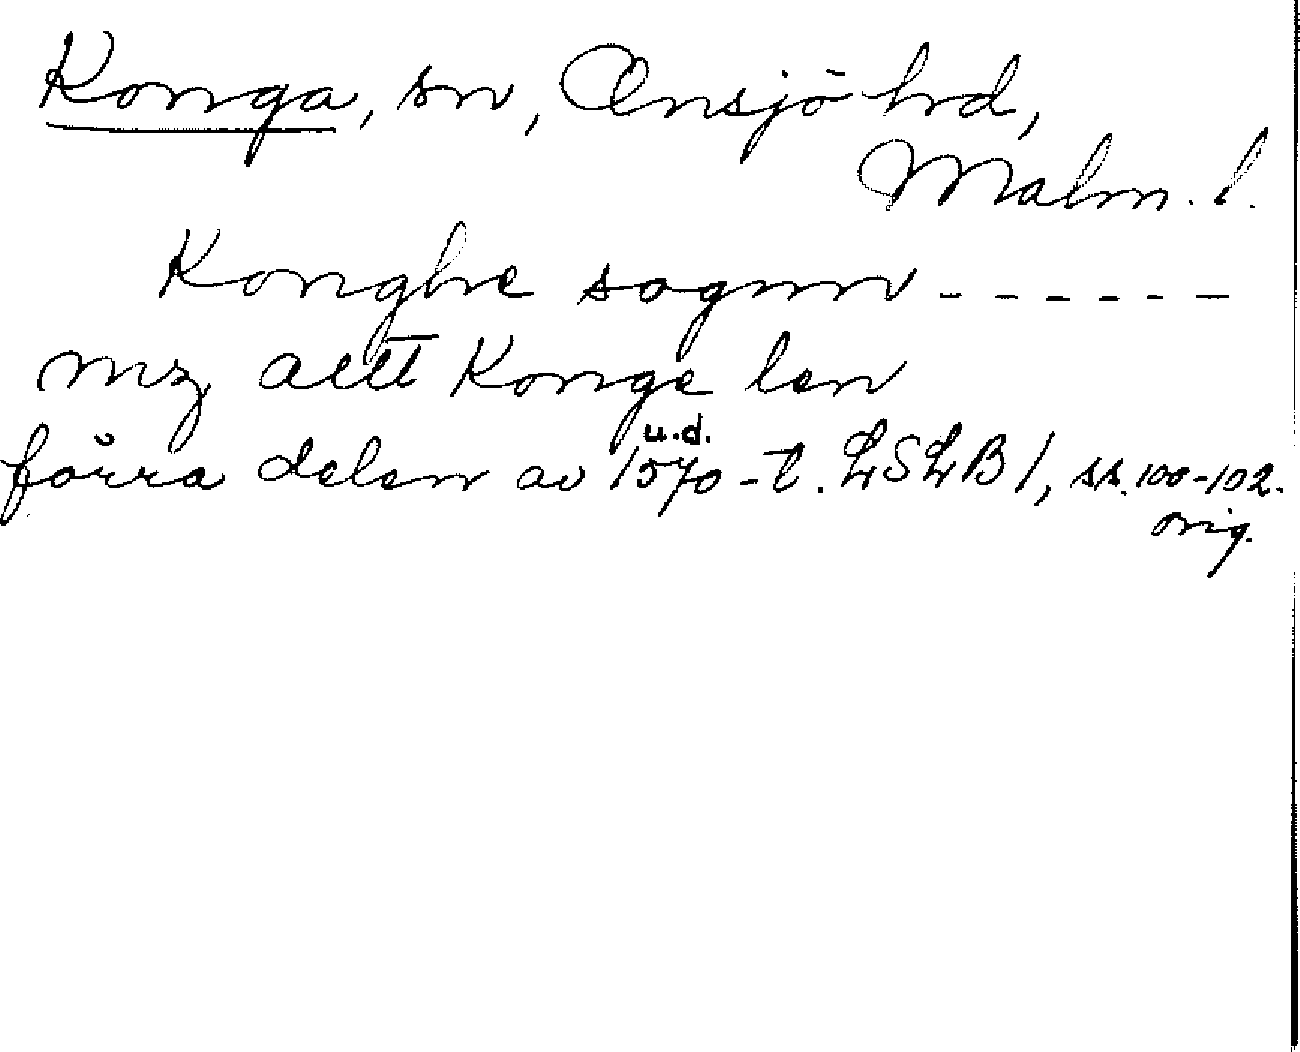 Konga, sn, Onsjö hrd,
Malm. l.
Konghe sognn - - - - - -
mz altt Konge len
u.d.
förra delen av 1570-t. LSLB 1, ss. 100-102.
orig.